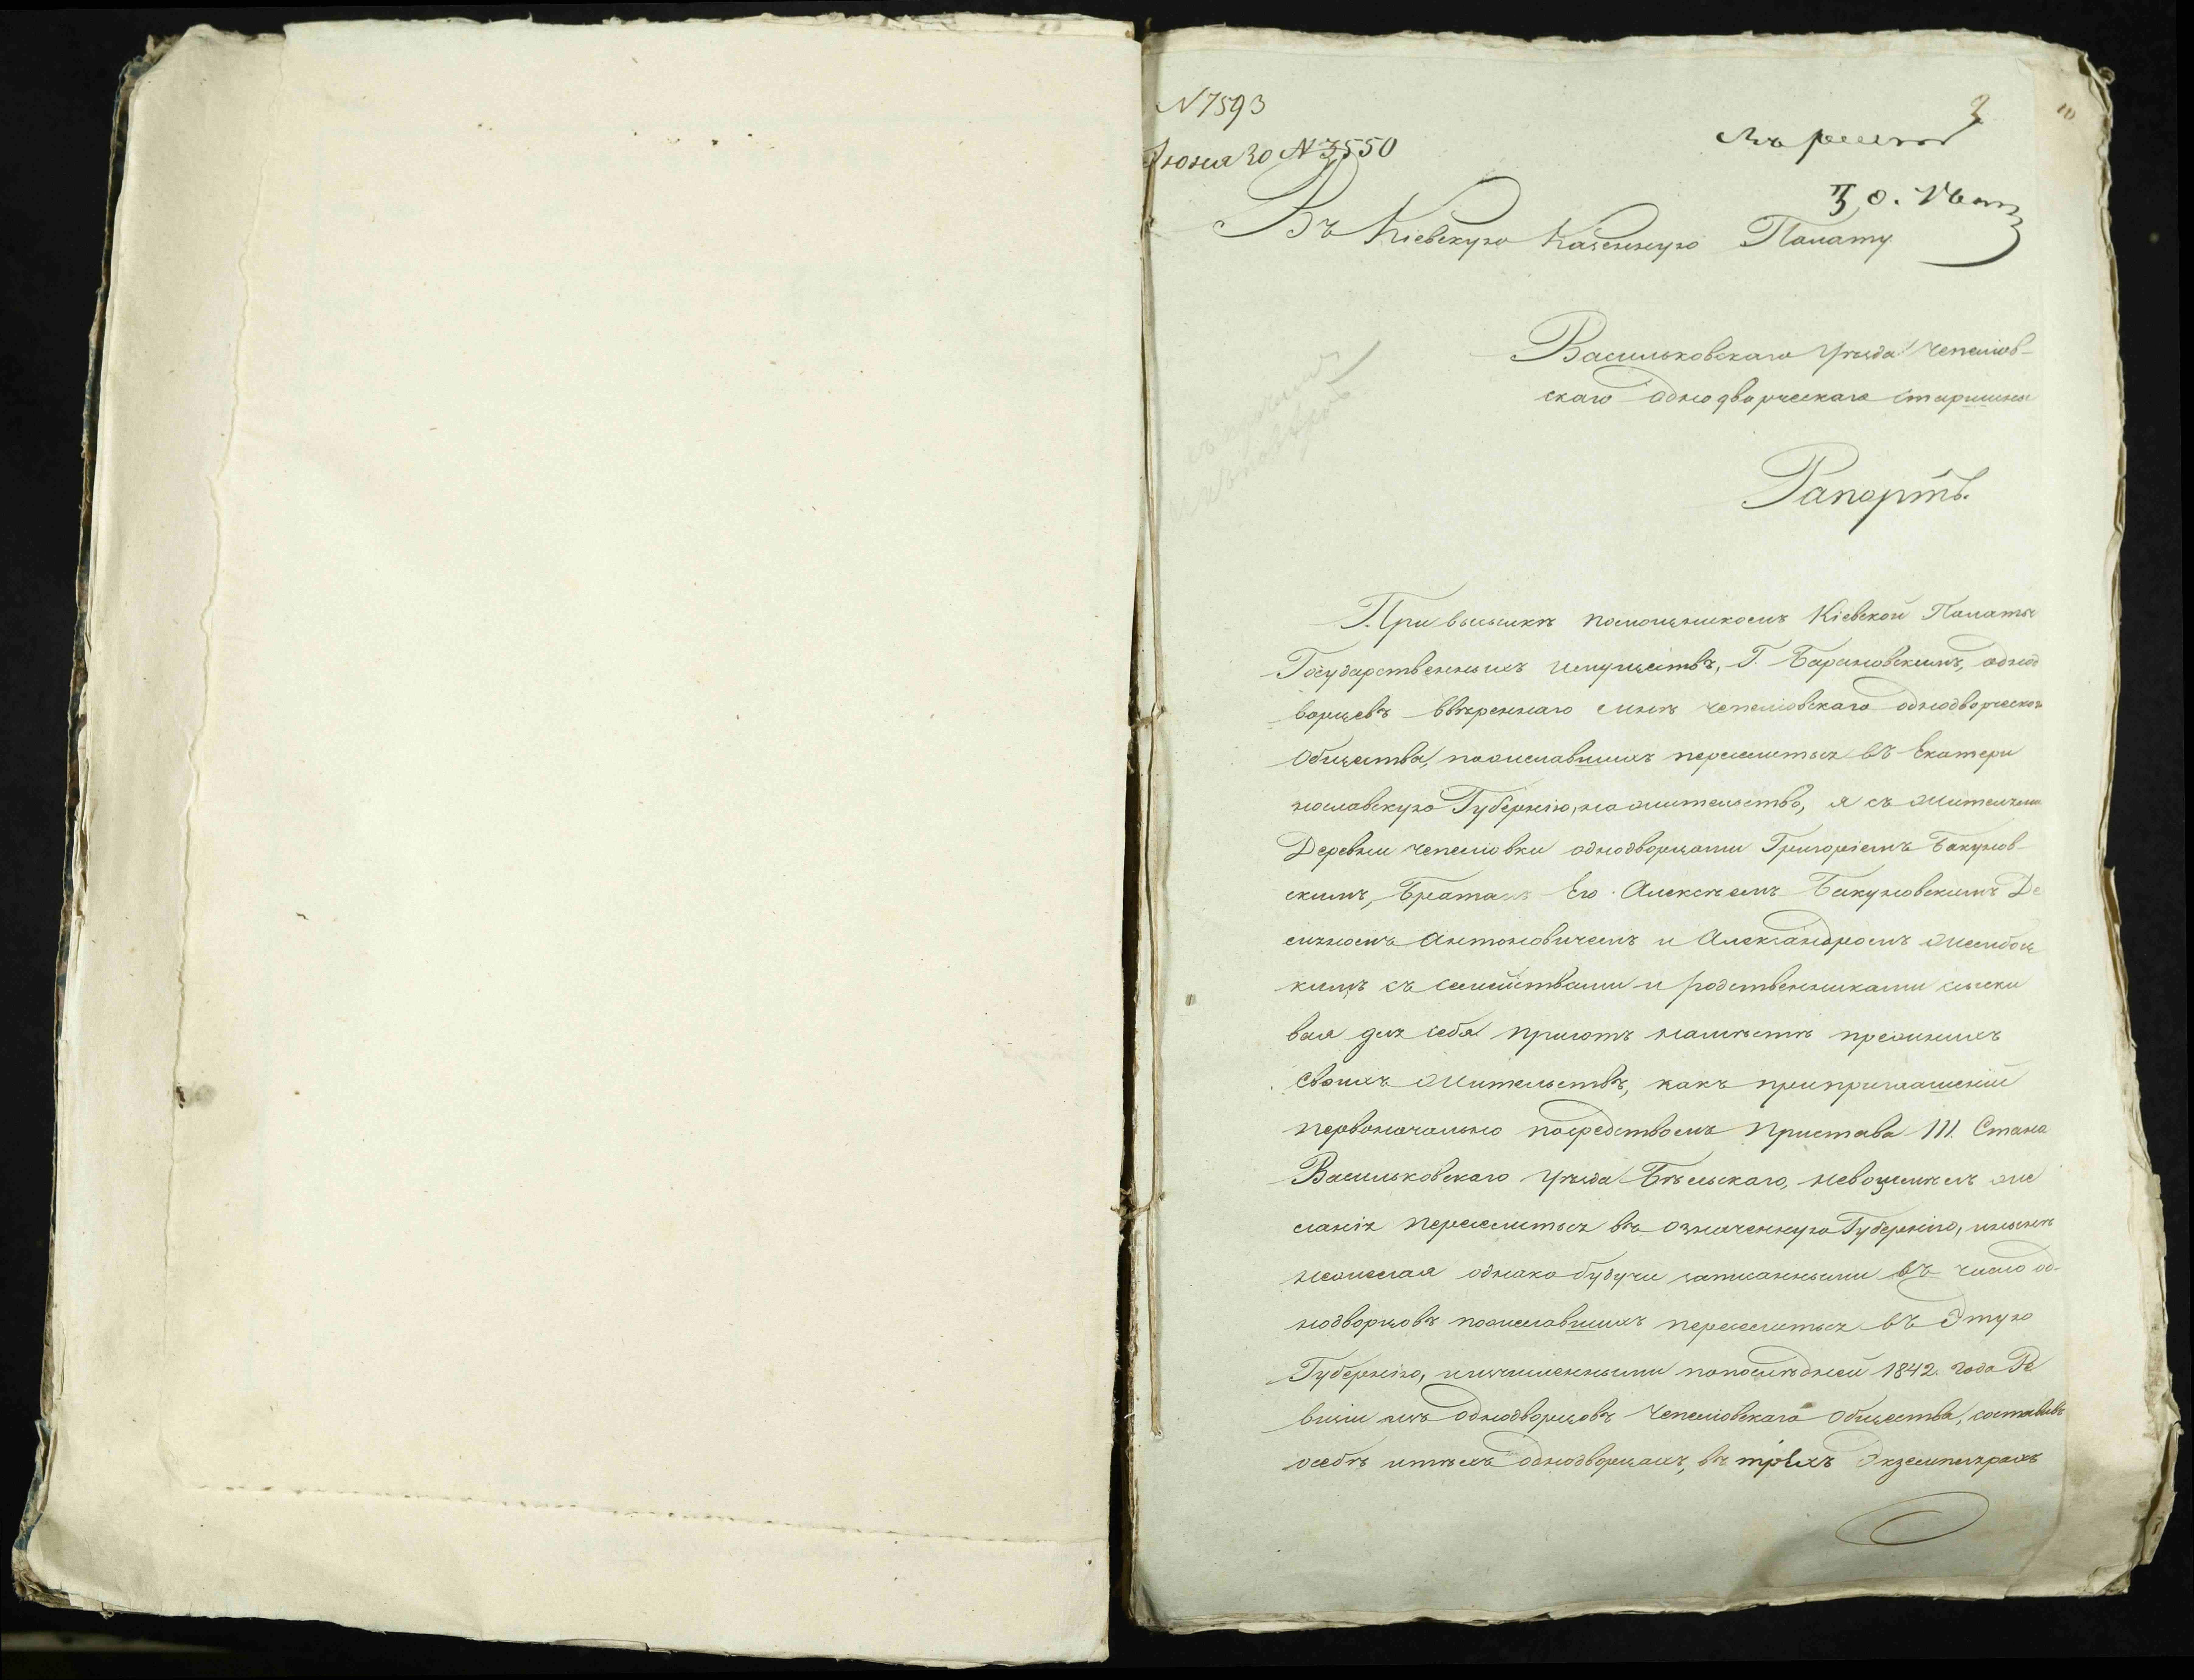 N 7593
Іюня 20 N 3550
3
Въ Кіевскую Казенную Палату
Васильковскаго Уѣзда Чепелiов-
скаго Однодворческаго Старшины
Рапортъ.
При высылкѣ помощникомъ Кіевской Палаты
Государственныхъ Имуществъ, Г. Барановскимъ, однод
ворцевъ ввѣреннаго мнѣ Чепеліовскаго однодворческаго
Общества, пожелавшихъ переселиться въ Екатери
нославскую Губернію, на жительство, я съ жителями
Деревни Чепеліовки однодворцами Григоріемъ Бакунов-
скимъ, Братомъ Его Алексѣемъ Бакуновскимъ Де
мьяномъ Антоновичемъ и Александромъ
кимъ съ семействами и родственниками сыски
вая для себя пріютъ намѣстѣ прежнихъ
своихъ жительствъ, какъ приприглашеніи
первоначально посредствомъ Пристава III. Стана
Васильковскаго Уѣзда Бѣльскаго, неозъимѣлъ же
ланія переселиться въ означенную Губернію, инынѣ
нежелая однако будучи записанными въ число од-
нодворцовъ пожелавшихъ переселиться въ Этую
Губернію, иичисленными попослѣдней 1842. года Ре
визіи изъ Однодворцовъ Чепеліовскаго Общества, составивъ
особѣ итѣхъ Однодворцахъ, въ трёхъ Экземплярахъ